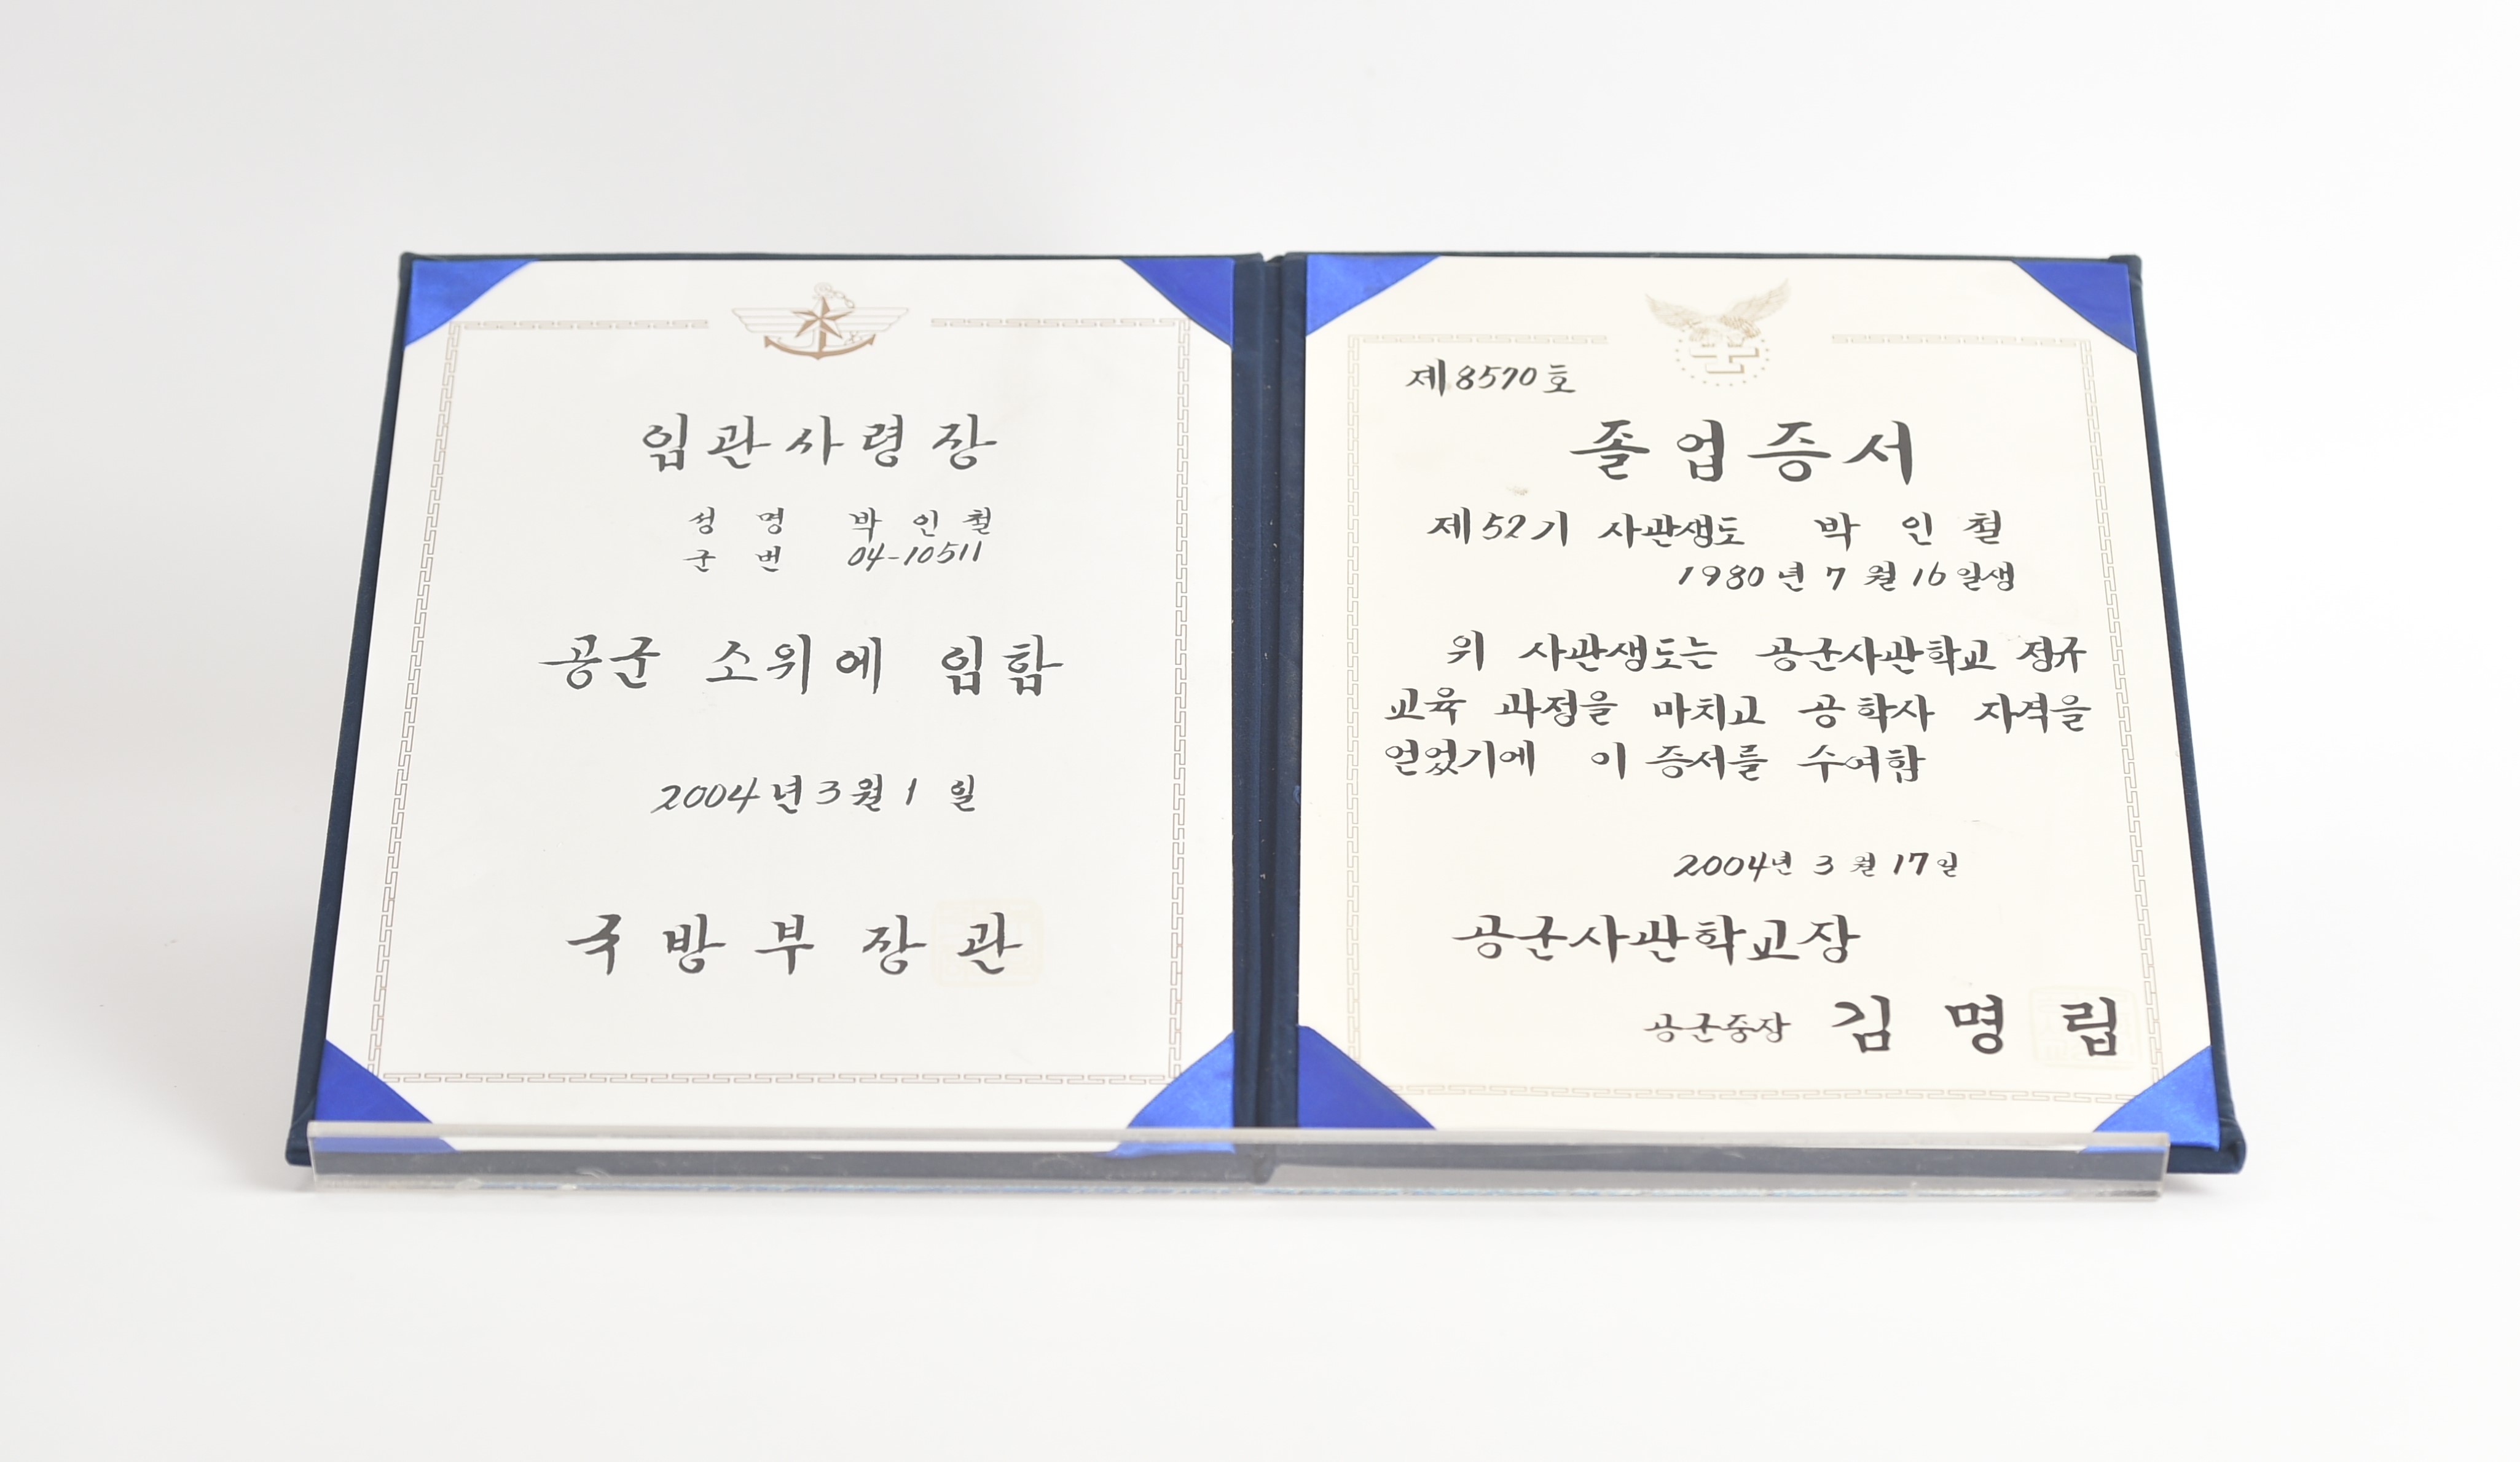 임관사령장
성 명 박 인 철
군 번 04-10511
공군 소위에 임함
2004년 3월 1 일
국 방 부 장 관
제8570호
졸업증서
제52기 사관생도 박 인 철
1980년 7 월 16 일생
위 사관생도는 공군사관학교 정규
교육 과정을 마치고 공학사 자격을
얻었기에 이 증서를 수여함
2004년 3 월 17일
공군사관학교장
공군중장 김 명 립